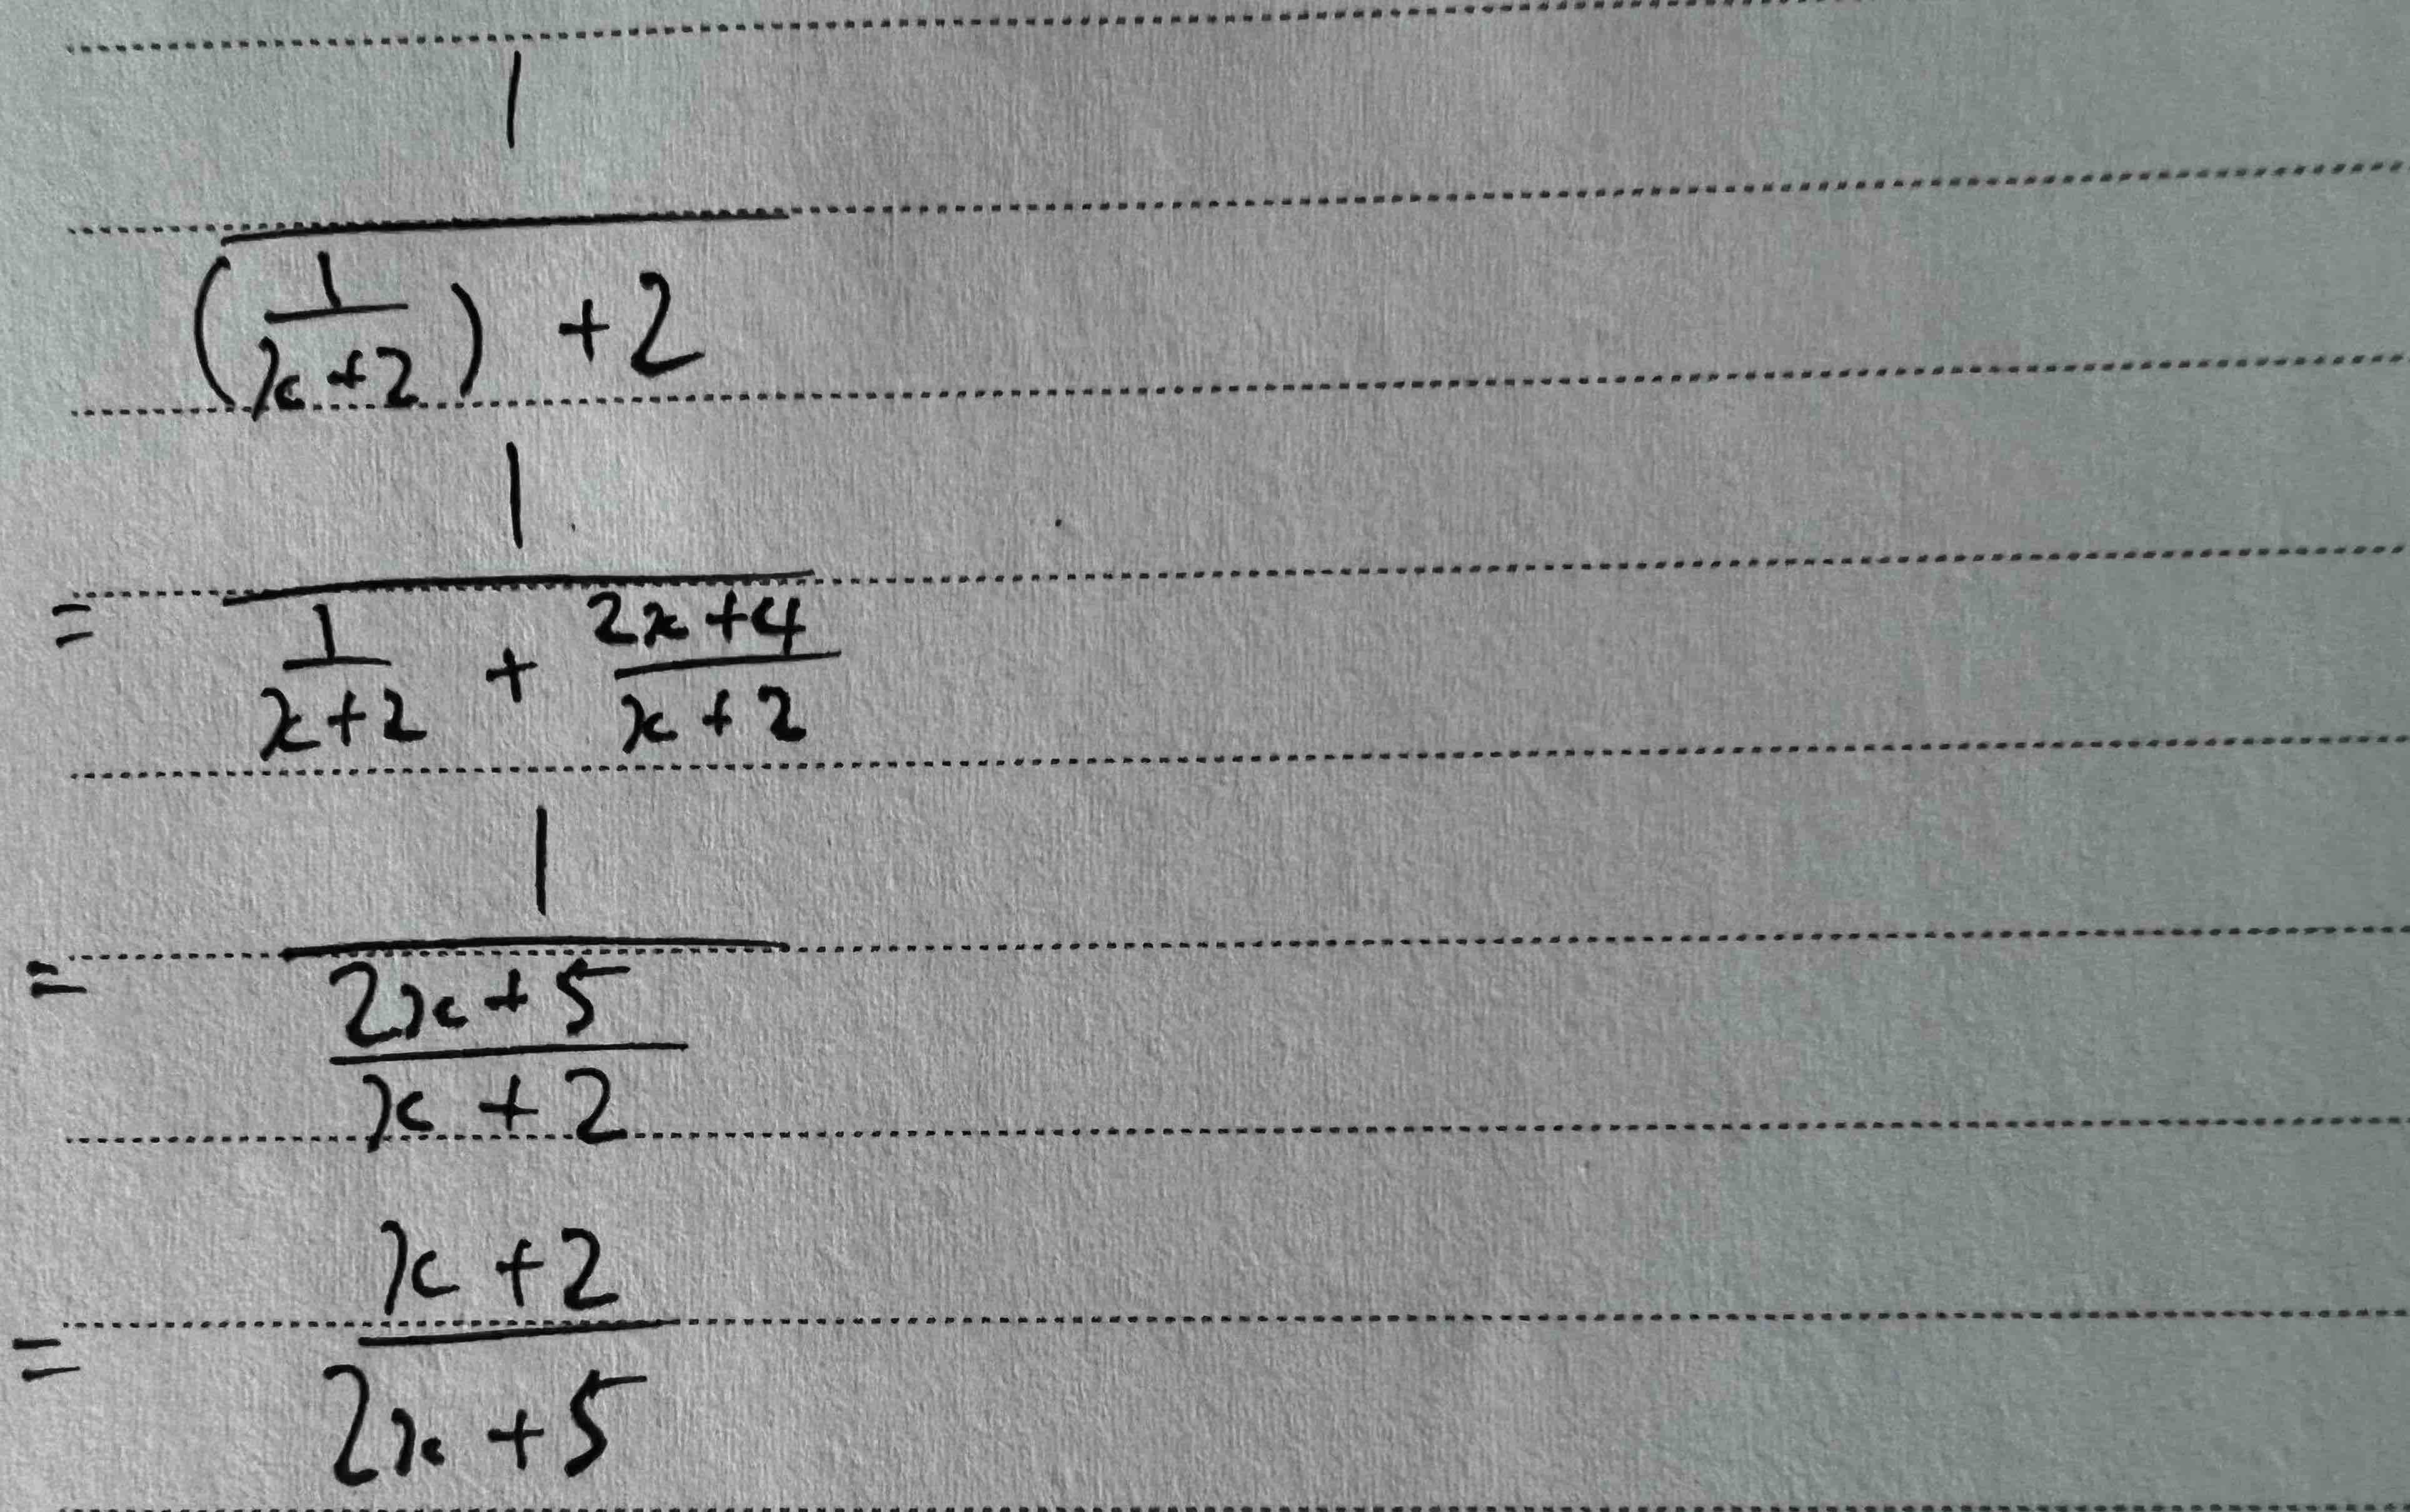 1
(1/(x+2)) +2
1
= 1/(x+2) + (2x+4)/(x+2)
1
= (2x+5)/(x+2)
= (x+2)/(2x+5)